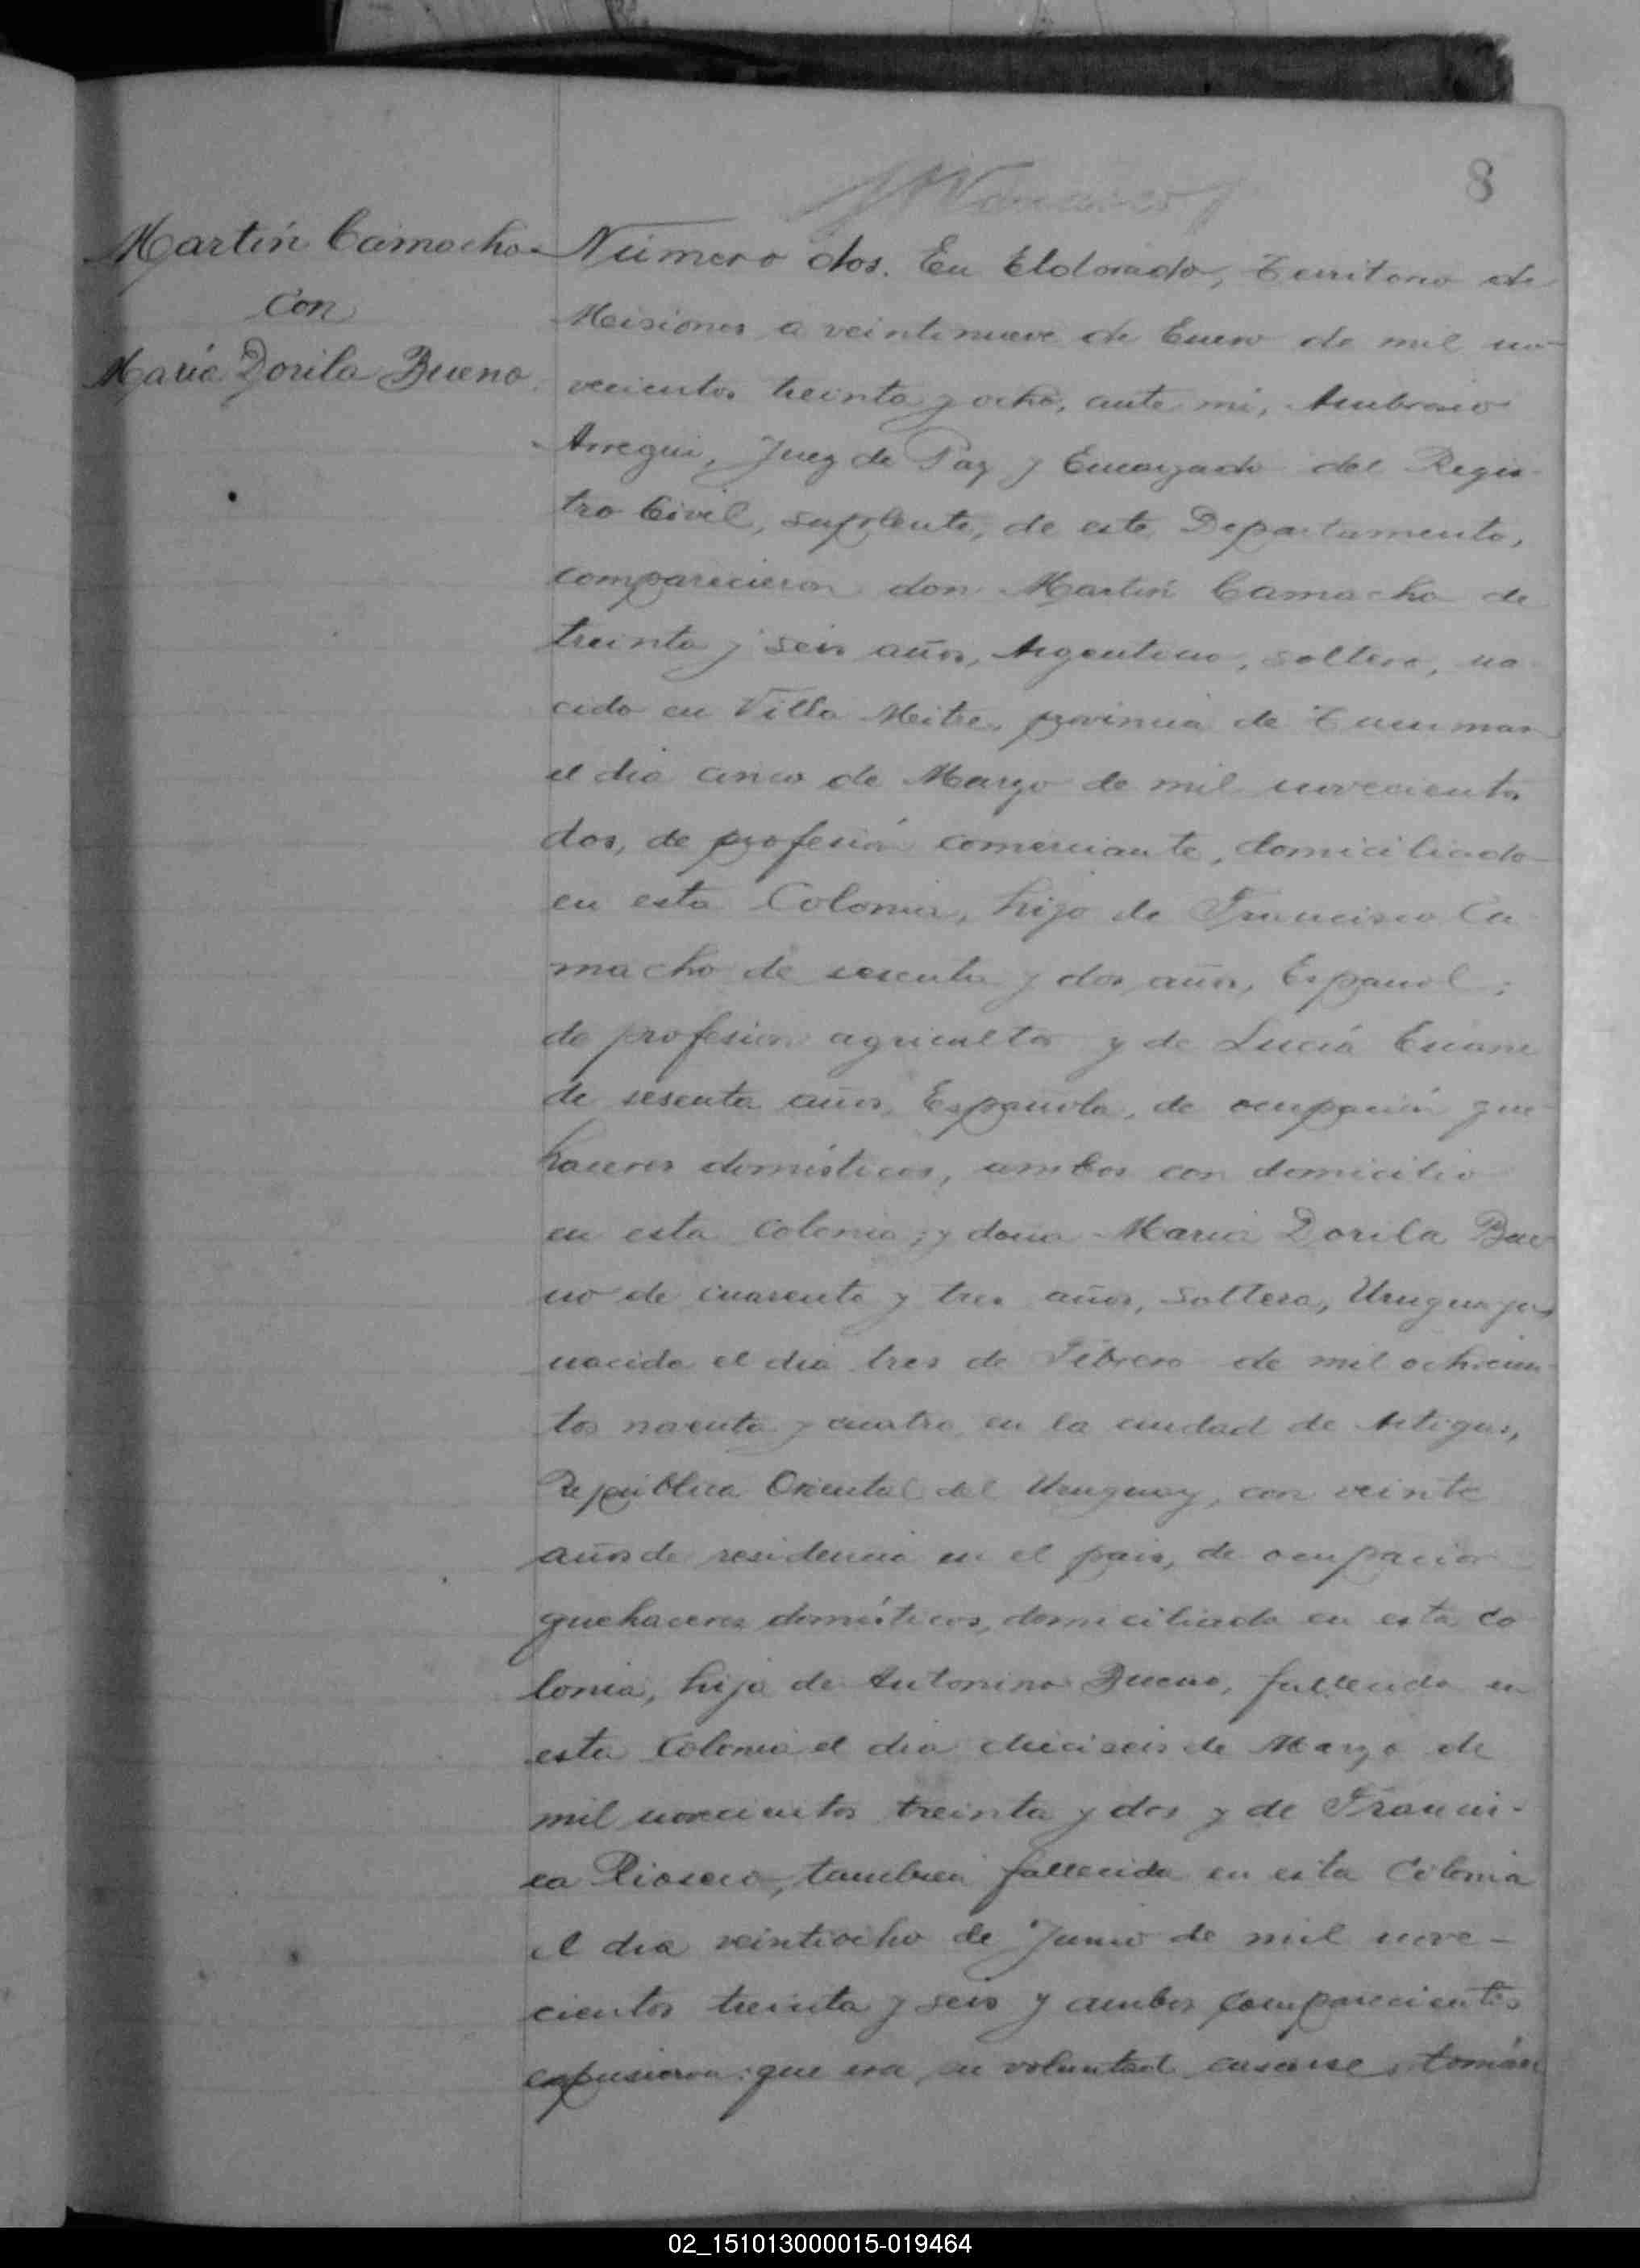 8
Martín Camacho
con
María Dorila Bueno
Número dos. En Eldorado, Territorio de
Misiones a veintinueve de Enero de mil no-
vecientos treinta y ocho, ante mi, Ambrosio
Arregui, Juez de Paz y Encargado del Regis-
tro Civil, suplente, de este Departamento,
comparecieron don Martín Camacho de
treinta y seis años, Argentino, soltero, na-
cido en Villa Mitre, provincia de Tucuman
el dia cinco de Marzo de mil novecientos
dos, de profesión comerciante, domiciliado
en esta Colonia, hijo de Francisco Ca
macho de sesenta y dos años, Español,
de profesion agricultor y de Lucía
de sesenta años, Española, de ocupación que-
haceres domésticos, ambos con domicilio
en esta colonia; y doña María Dorila Bue-
no de cuarenta y tres años, soltera, Uruguaya,
nacida el dia tres de Febrero de mil ochocien-
tos noventa y cuatro en la ciudad de Artigas,
República Oriental del Uruguay, con veinte
años de residencia en el pais, de ocupación
quehaceres domésticos, domiciliada en esta Co
lonia, hija de Antonino Bueno, fallecido en
esta Colonia el dia dieciseis de Marzo de
mil novecientos treinta y dos y de Francis-
ca tambien fallecida en esta Colonia
el dia veintiocho de Junio de mil nove-
cientos treinta y seis y ambos comparecientes
expusieron: que era su voluntad casarse, tomán
02_151013000015-019464